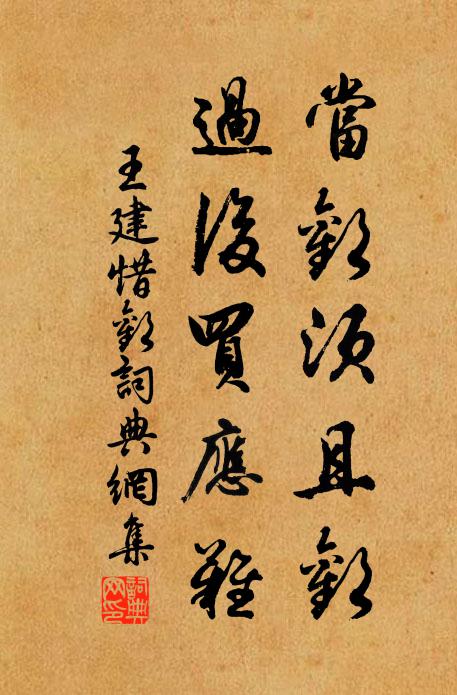 當歡須且歡
過後買應難
王建惜歡詞典網集
詞典網印